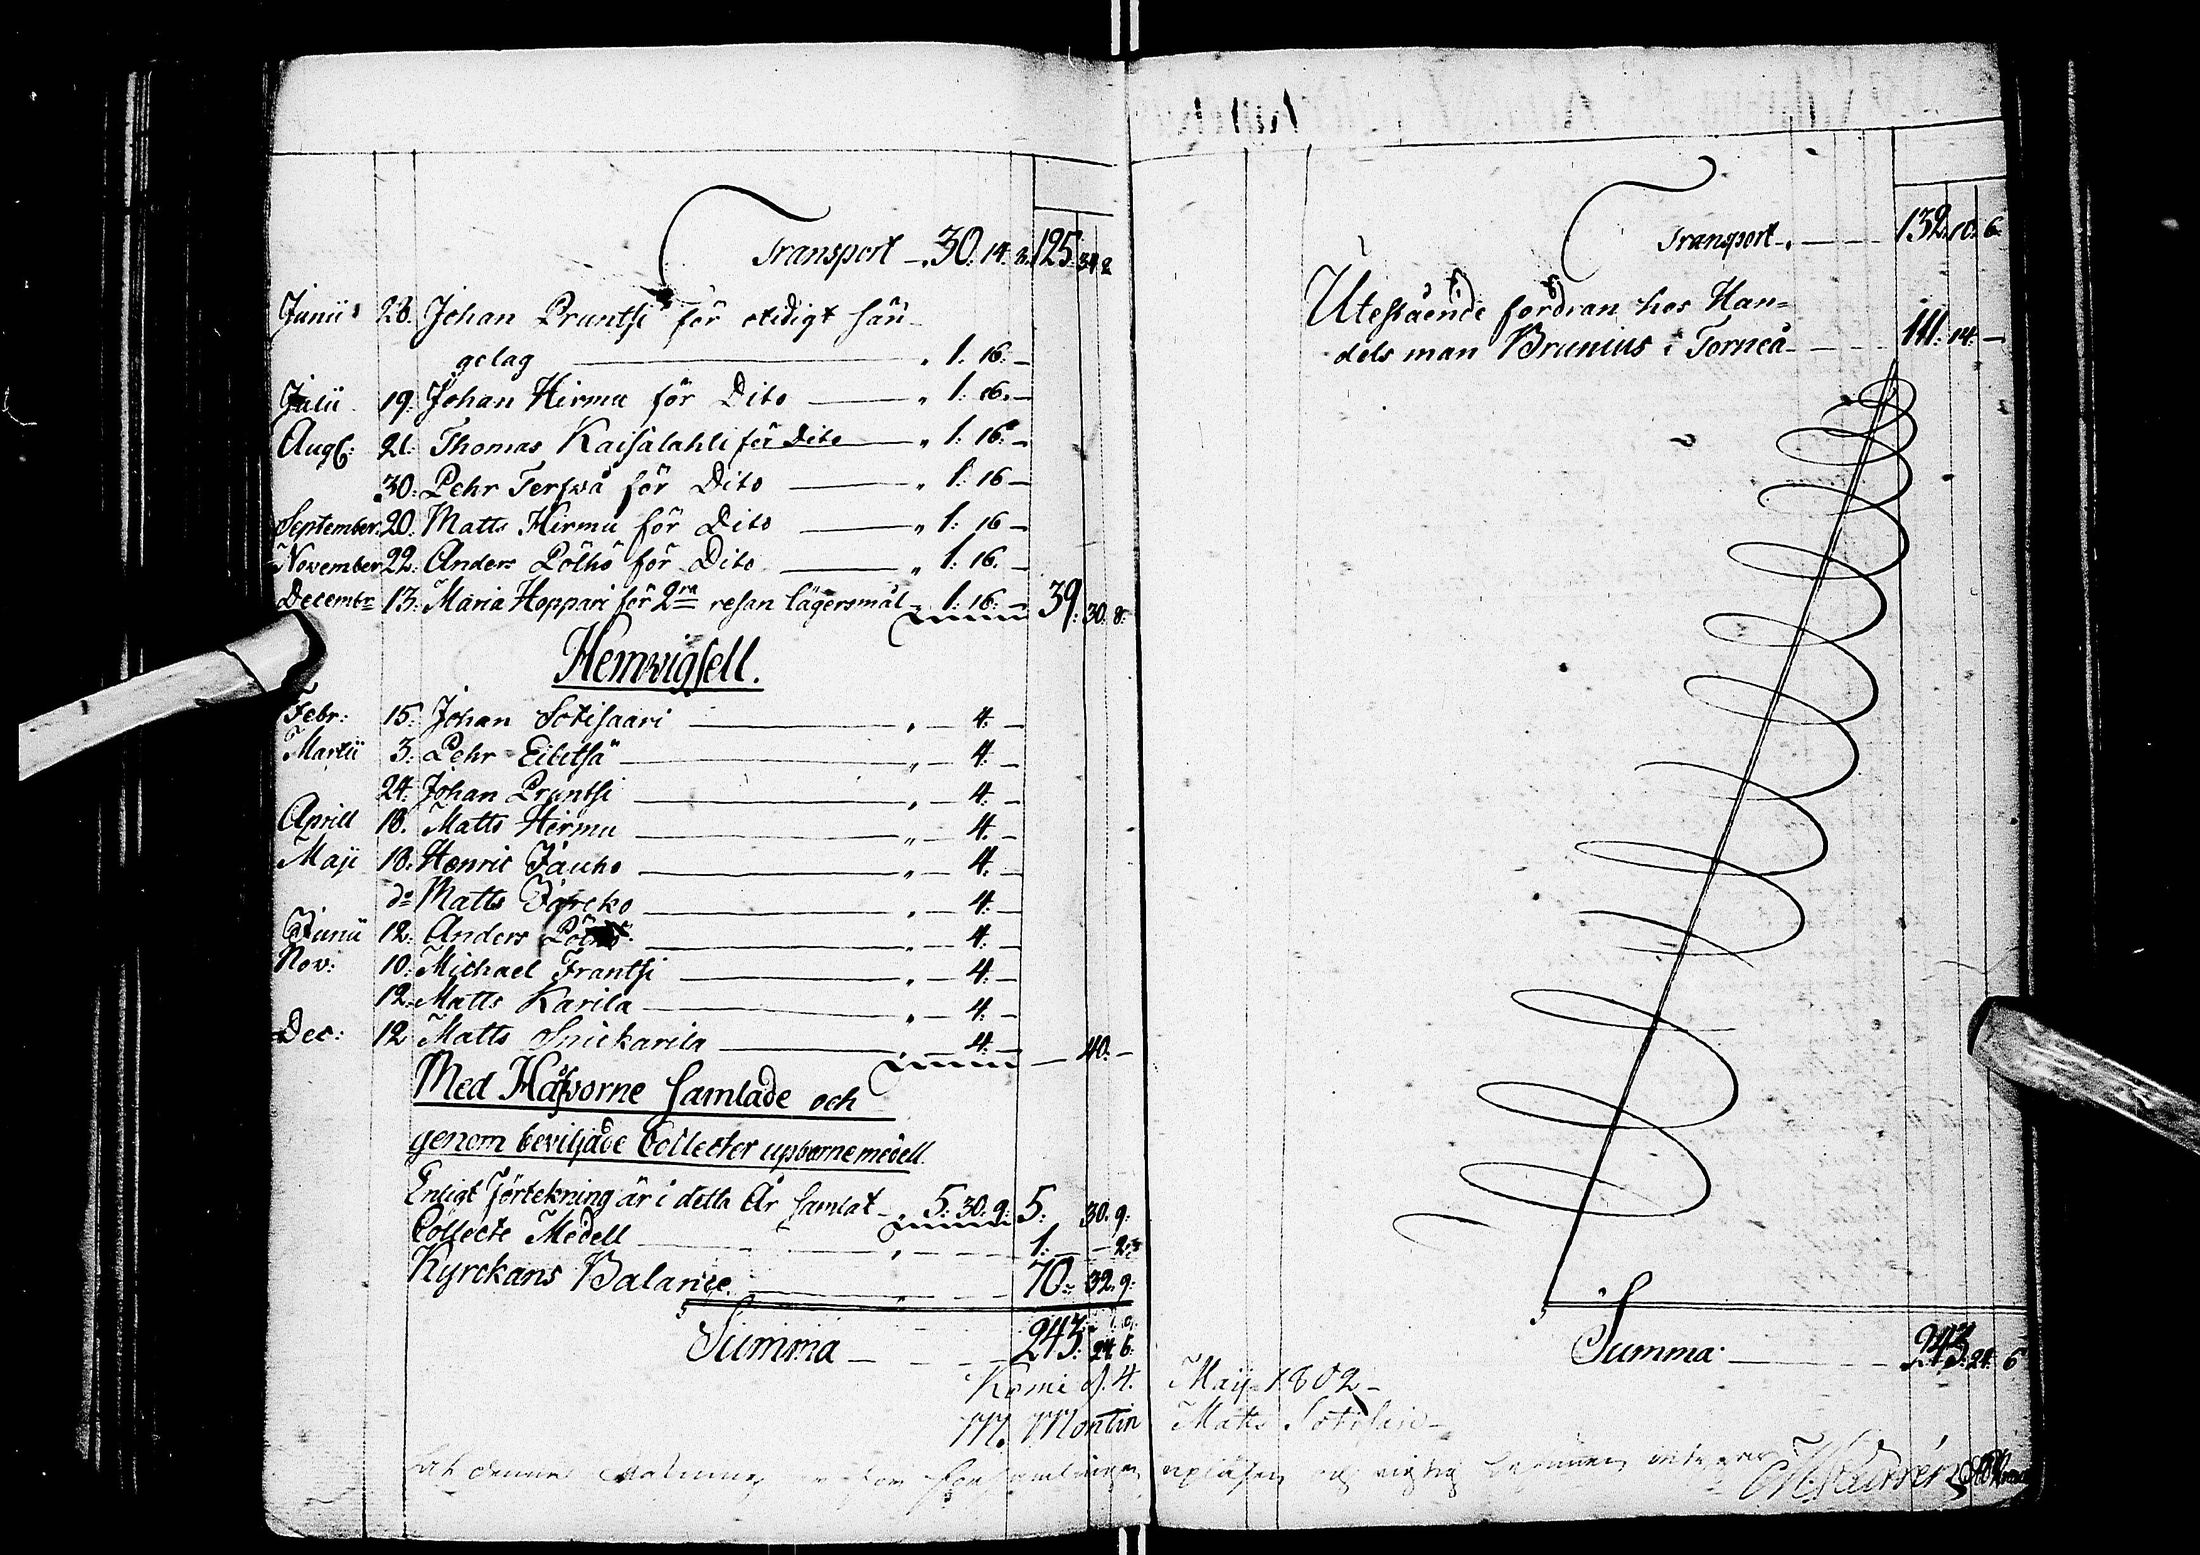 Transport — 30. 14. 8. 125. 34. 2
Junii 28. Johan Pruntsi för otidigt sän-
gelag — " 1. 16. —
Julii 19. Johan Hirmu för Dito — " 1. 16. —
Augs: 21. Thomas Kaisalahti för Dito — " 1. 16. —
30. Pehr Terfwa för Dito — " 1. 16 —
September 20. Matts Hirmu för Dito — " 1. 16 —
November 22. Anders Pölhö för Dito — " 1. 16. —
Decembr 13. Maria Hoppari för 2ra resan lägersmål — 1. 16. — 39. 30. 8.
Hemvigsell.
Febr: 15. Johan Sotisaari — " — 4. —
Martii 3. Pehr Eibetsä — " — 4. —
24. Johan Pruntsi — " — 4. —
Aprill 18. Matts Hirmu — " — 4. —
Maji 18. Henric Jauho — " — 4. —
do Matts — " — 4. —
Junii 12. Anders — " — 4. —
Nov: 10. Michael Frantsi — " — 4. —
12. Matts Karila — " — 4. —
Dec: 12 Matts Snickarila — 4. — — 40. —
Med Håfvorne samlade och
genom beviljade Collecter upborne medell.
Enligt förtekning är i detta År samlat — 5. 30. 9. 5. 30. 9.
Collecte Medell — " — 1. —
Kyrckans Balance — " — 70. 32. 9.
Summa — 243. 24. 6.
Transport. — 132. 10. 6.
Utestående fordran hos Han-
dels man Brunius i Torneå — 111. 14. —
Summa — 243. 24. 6
Kemi d. 4. Maij 1802 —
M. Montin Matts